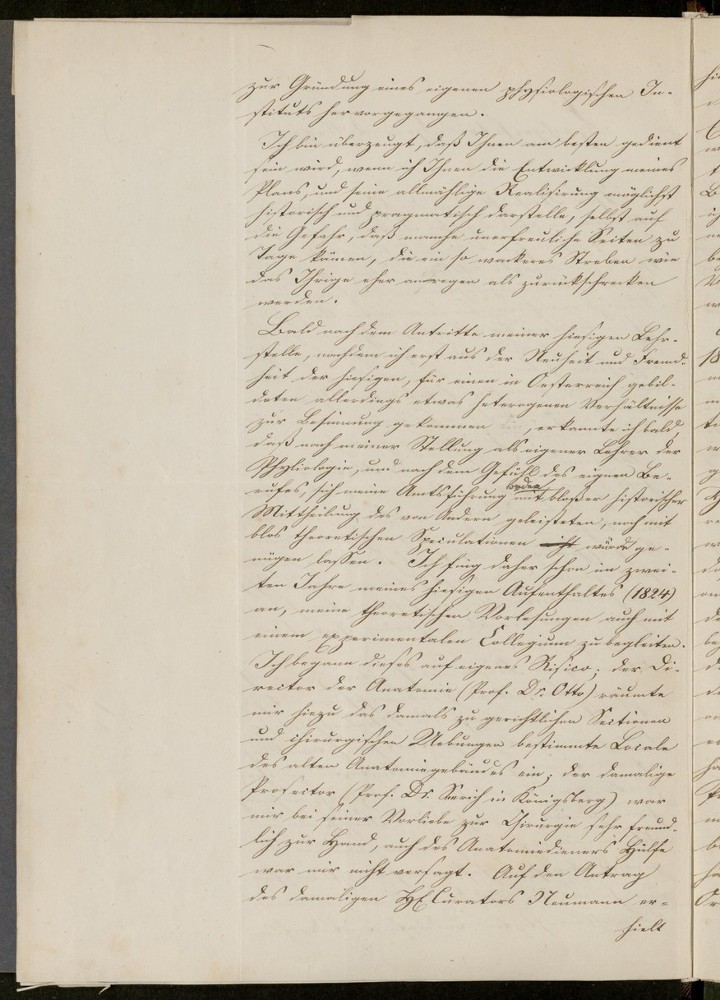 zur Gründung eines eigenen physiologischen In-
stituts hervorgegangen.
Ich bin überzeugt, daß Ihnen am besten gedient
sein wird, wenn ich Ihnen die Entwicklung meines
Plans, und seine allmählige Realisirung möglichst
historisch und pragmatisch darstelle, selbst auf
die Gefahr, daß manche unerfreuliche Seiten zu
Tage kämen, die ein so wackeres Streben wie
das Ihrige eher anregen als zurückschrecken
werden.
Bald nach dem Antritte meiner hiesigen Lehr-
stelle, nachdem ich erst aus der Neuheit und Fremd-
heit der hiesigen, für einen in Oesterreich gebil-
deten allerdings etwas heterogenen Verhältnisse
zur Besinnung gekommen, erkannte ich bald,
daß nach meiner Stellung als eigener Lehrer der
Physiologie, und nach dem Gefühl des eignen Be-
rufes, sich meine Amtsführung weder mit bloßer historischer
Mittheilung des von Andern geleisteten, noch mit
blos theoretischen Speculationen würde ge-
nügen lassen. Ich fing daher schon im zwei-
ten Jahre meines hiesigen Aufenthaltes (1824)
an, meine theoretischen Vorlesungen auch mit
einem experimentalen Collegium zu begleiten.
Ich begann dieses auf eigenes Risico; der Di-
rector der Anatomie (Prof. Dr. Otto) räumte
mir hiezu das damals zu gerichtlichen Sectionen
und chirurgischen Uebungen bestimmte Locale
des alten Anatomiegebäudes ein; der damalige
Prosector (Prof. Dr. in Königsberg) war
mir bei seiner Vorliebe zur Chirurgie sehr freund-
lich zur Hand, auch des Anatomiedieners Hülfe
war mir nicht versagt. Auf den Antrag
des damaligen H Curators Neumann er-
hielt